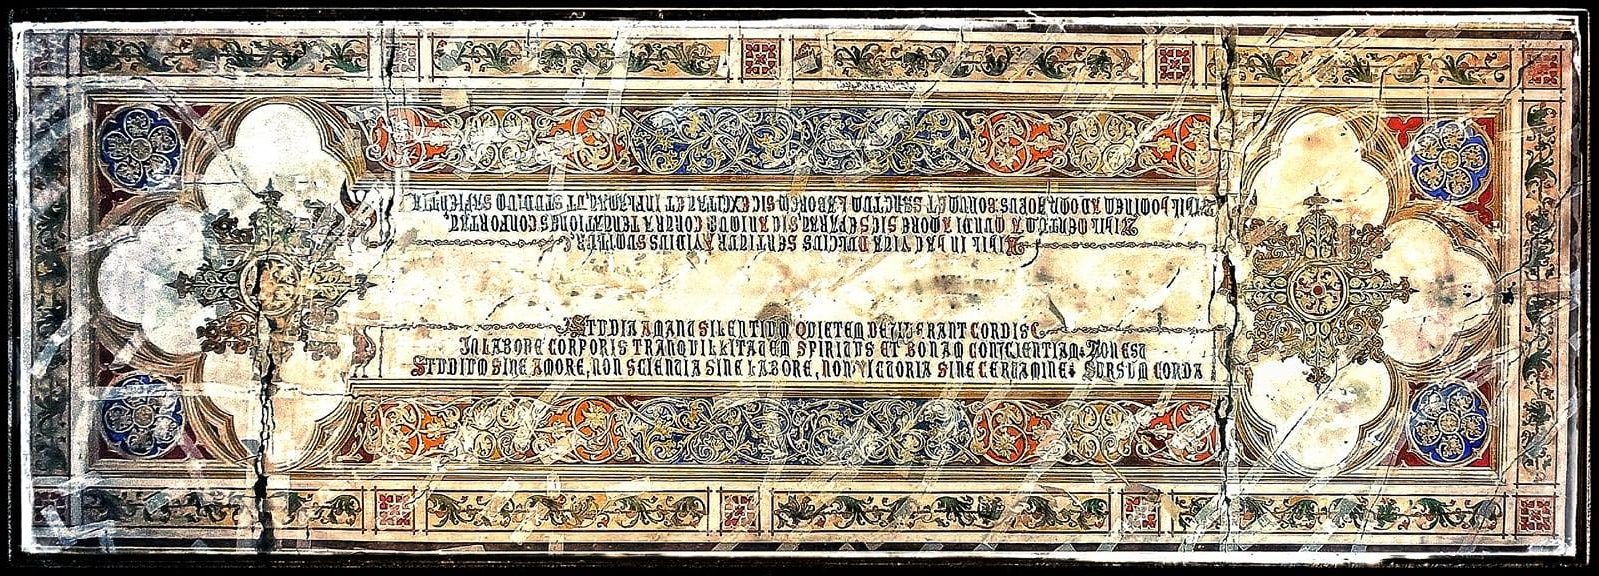 NIHIL IN HAC VITA DULCIUS SENTITUR AVIDIUS SUMITUR
NIHIL MENTEM A MUNDI AMORE SIC SEPARAT, SIC ANIMUM CONTRA TEMPTATIONES CONFORTAT,
NIHIL HOMINEM AD OPUS BONUM ET SANCTUM LABOREM SIC EXCITAT ET INFLAMAT, UT STUDIUM SAPIENTIE
STUDIA AMANT SILENTIUM QUIETEM CORDIS
IN LABORE CORPORIS TRANQUILLITATEM SPIRITUS ET BONAM CONSCIENTIAM. NON EST
STUDIUM SINE AMORE, NON SCIENTIA SINE LABORE, NON VICTORIA SINE CERTAMINE. SURSUM CORDA